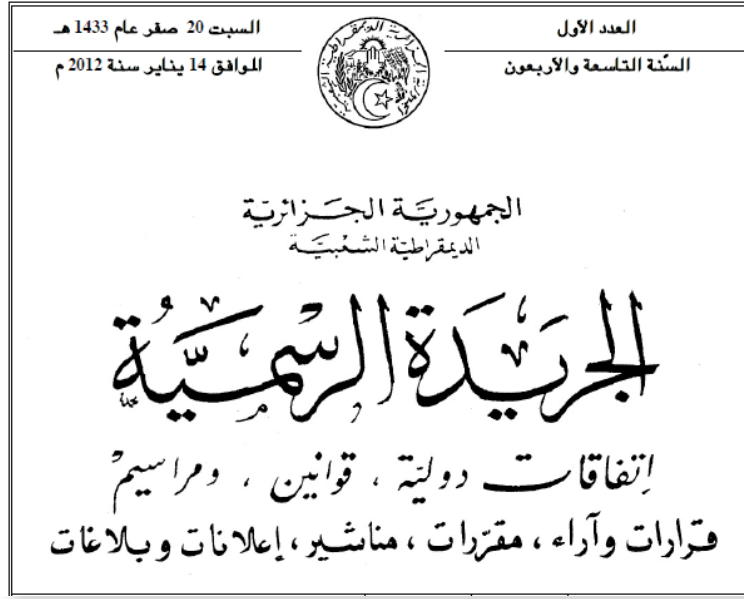 العدد الأول
السّنة التاسعة والأربعون
السبت 20 صفر عام 1433 هـ
الموافق 14 يناير سنة 2012 م
الجمهوريّة الجـزائريّة
الديمقراطيّة الشعبيّة
الجريدة الرسميّة
إتفاقات دوليّة ، قوانين ، ومراسيم
قرارات وآراء ، مقرّرات ، مناشير ، إعلانات وبلاغات